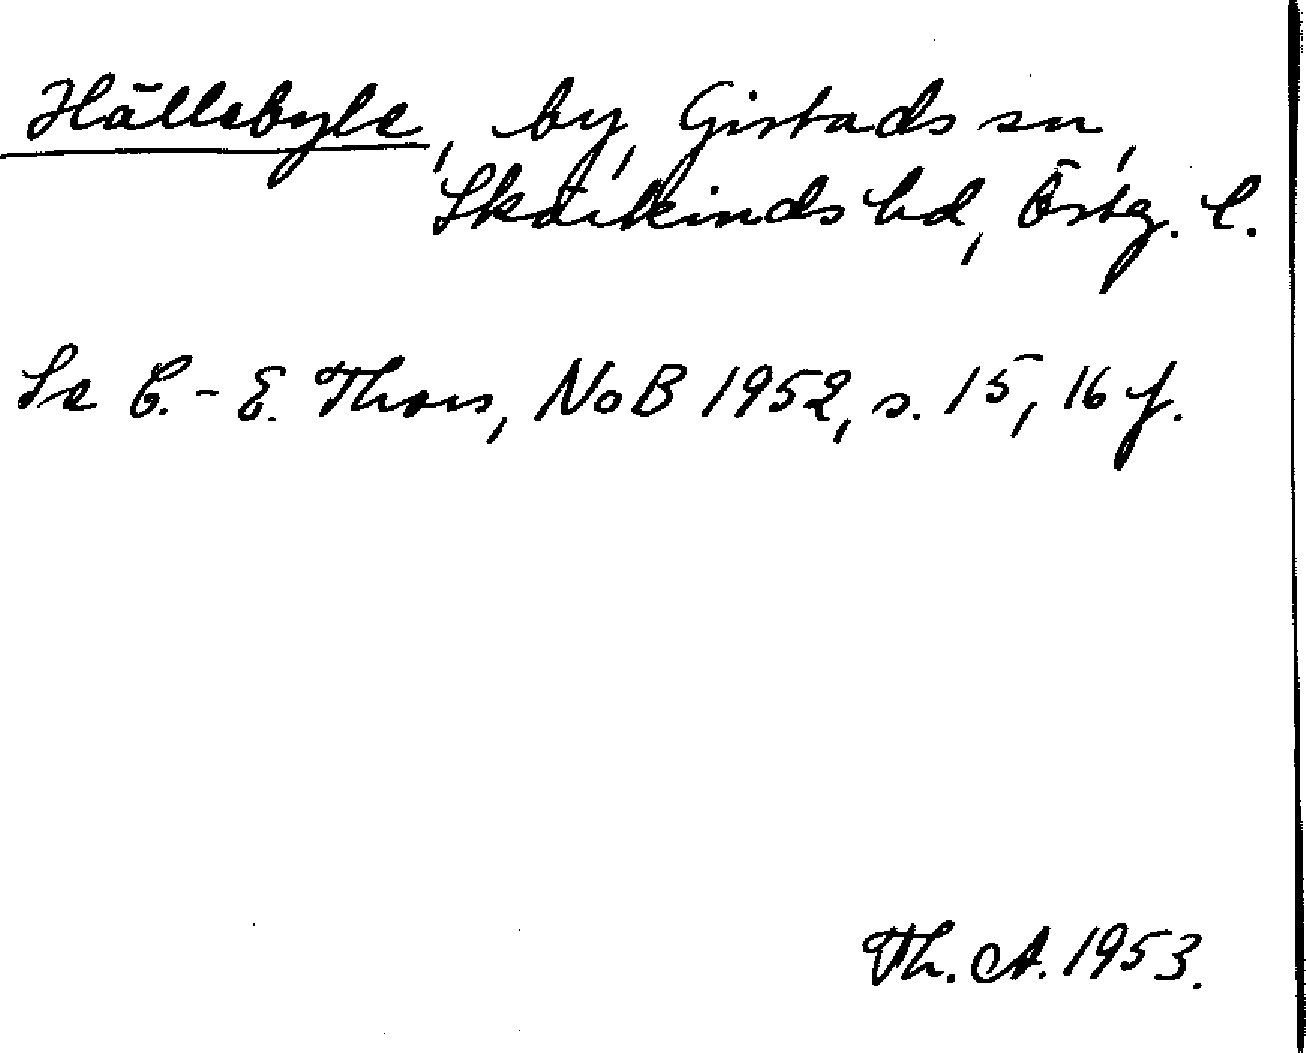 Hällebyle, by, Gistads sn,
Skärkinds hd, Östg. l.
Se C.-E. Thors, NoB 1952, s. 15, 16 f.
Th. A. 1953.